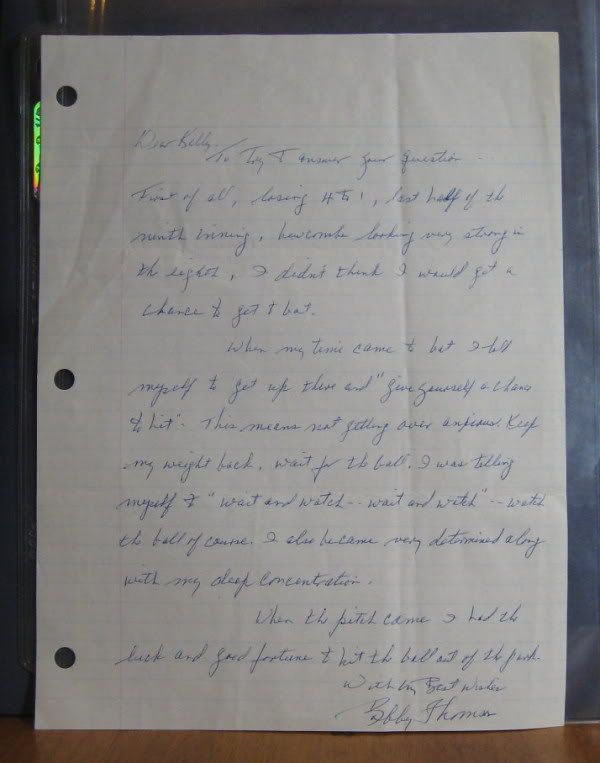 Dear Billy,
To try & answer your question --
First of all, losing 4 to 1, last half of the
ninth inning, Newcombe looking very strong in
the eighth, I didn't think I would get a
chance to get & bat.
When my time came to bat I tell
myself to get up there and "give yourself a chance
to hit". This means not getting over anxious. Keep
my weight back, wait for the ball. I was telling
myself to "wait and watch -- wait and watch" -- watch
the ball of course. I also became very determined along
with my deep concentration.
When the pitch came I had the
luck and good fortune to hit the ball out of the park.
With my Best Wishes
Bobby Thomson